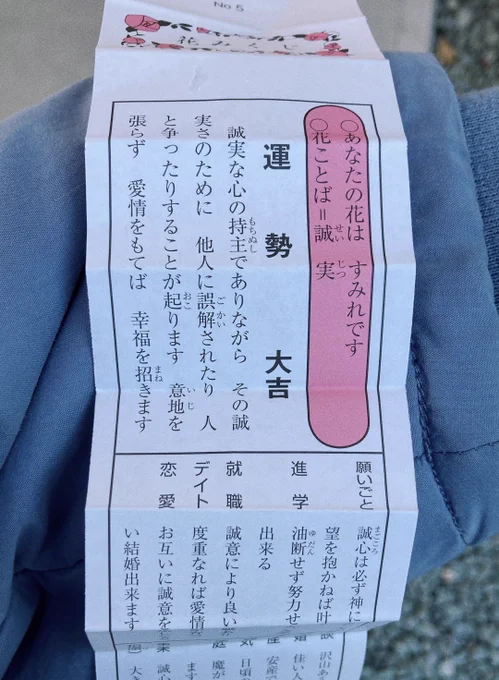 No 5
花みくじ
○あなたの花は すみれです
○花ことば＝誠実
運勢 大吉
誠実な心の持主でありながら その誠
実さのために 他人に誤解されたり 人
と争ったりすることが起ります 意地を
張らず 愛情をもてば 幸福を招きます
願いごと 誠心は必ず神に
望を抱かねば叶
進学 油断せず努力せ
出来る
就職 誠意により良い
デイト 度重なれば愛情
恋愛 お互いに誠意を
い結婚出来ます
沢山あ
佳い人
安産で
日頃
魔が
ます
誠心
大き